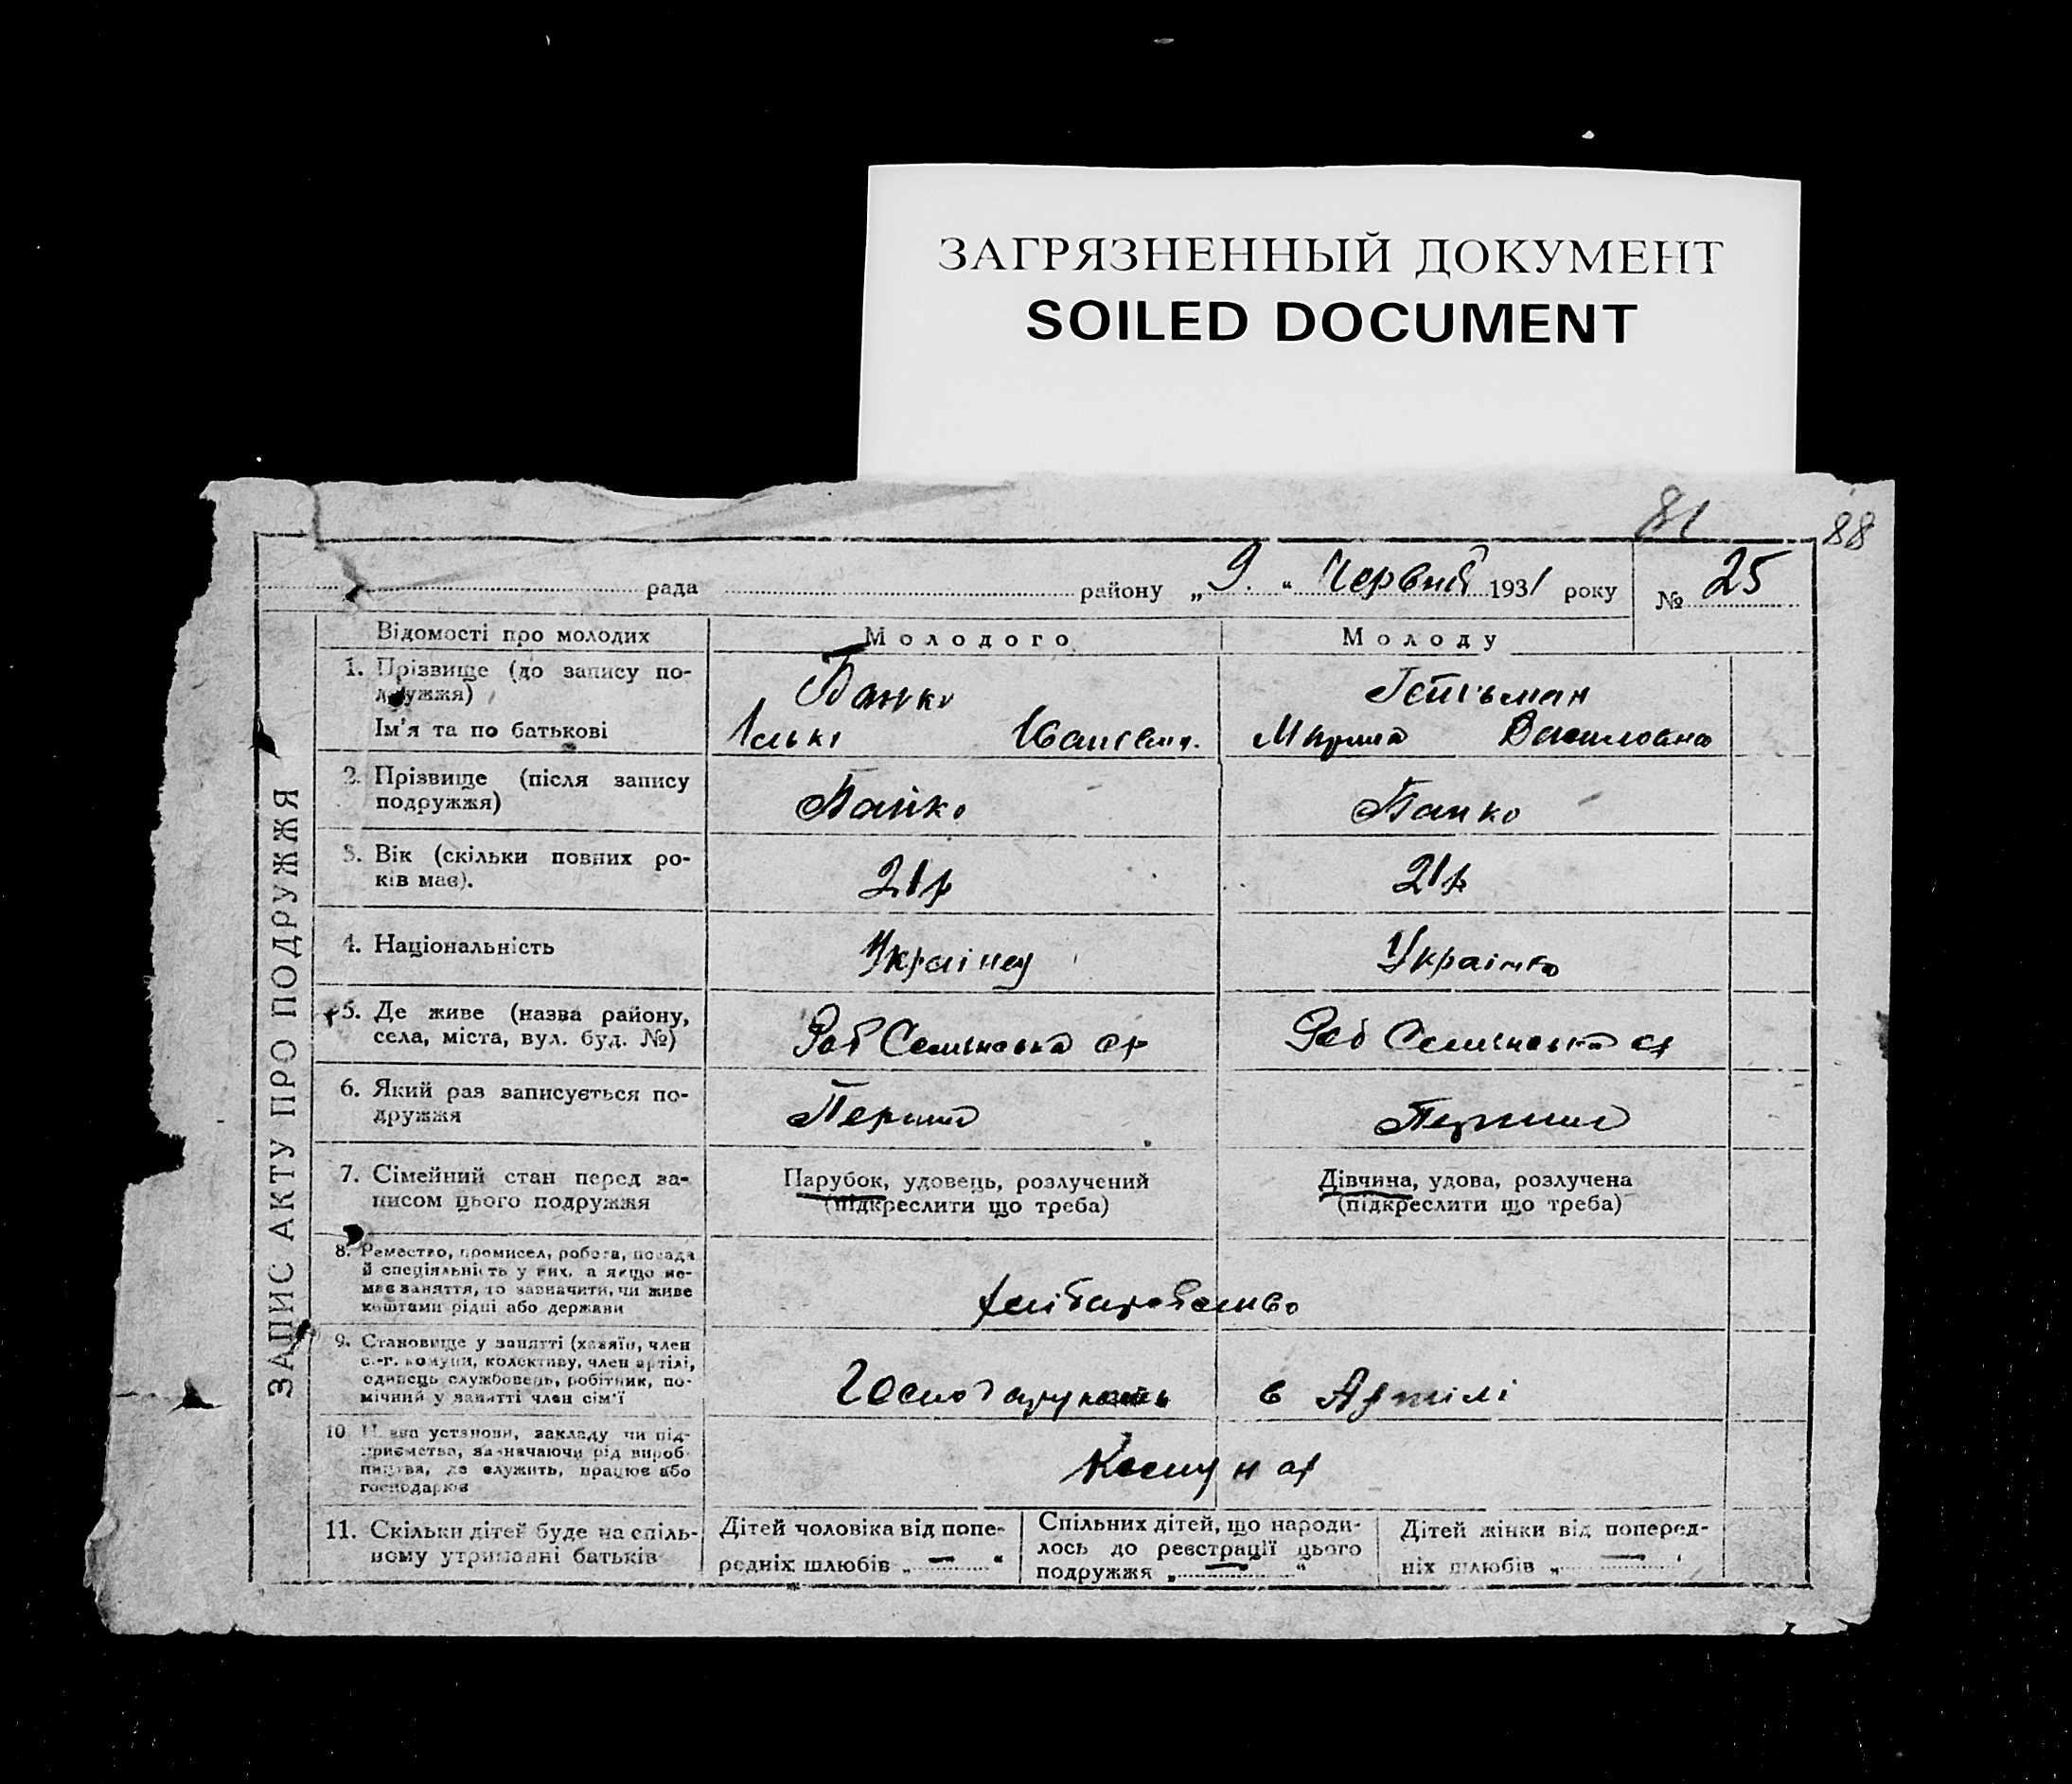 ЗАГРЯЗНЕННЫЙ ДОКУМЕНТ
SOILED DOCUMENT
81
88
рада району „ 9. “ Червня 1931 року № 25
ЗАПИС АКТУ ПРО ПОДРУЖЖЯ
Відомості про молодих Молодого Молоду
1. Прізвище (до запису по-
дружжя)
Гетьман
Ім’я та по батькові
Марина Василовна
2. Прізвище (після запису
подружжя)
3. Вік (скільки повних ро-
ків має).
21 р 21 р
4. Національність
Українец Українка
5. Де живе (назва району,
села, міста, вул. буд. №)
6. Який раз записується по-
дружжя
Перший Перший
7. Сімейний стан перед за-
писом цього подружжя
Парубок, удовець, розлучений
(підкреслити що треба)
Дівчина, удова, розлучена
(підкреслити що треба)
8. Ремество, промисел, робота, посада
й спеціяльність у них, а якщо не-
має заняття, то зазначити, чи живе
коштами рідні або держави
9. Становище у занятті (хазяїн, член
с.-г. комуни, колективу, член артілі,
одинець службовець, робітник, по-
мічний у занятті член сім’ї
в Артілі
10 Назва установи, закладу чи під-
приємства, зазначаючи рід вироб-
ництва, де служить, працює або
господарює
11. Скільки дітей буде на спіль-
ному утриманні батьків
Дітей чоловіка від попе-
редніх шлюбів „ — “
Спільних дітей, що народи-
лось до реєстрації цього
подружжя „ — “
Дітей жінки від поперед-
ніх шлюбів „ — “